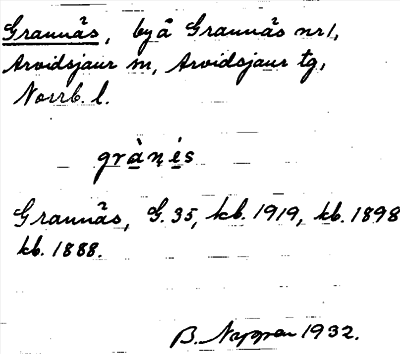 Grannäs, by å Grannäs nr 1,
Arvidsjaur sn, Arvidsjaur tg,
Norrb. l.
grànés
Grannäs, G. 35, kb. 1919, kb. 1898
kb. 1888.
B. 1932.